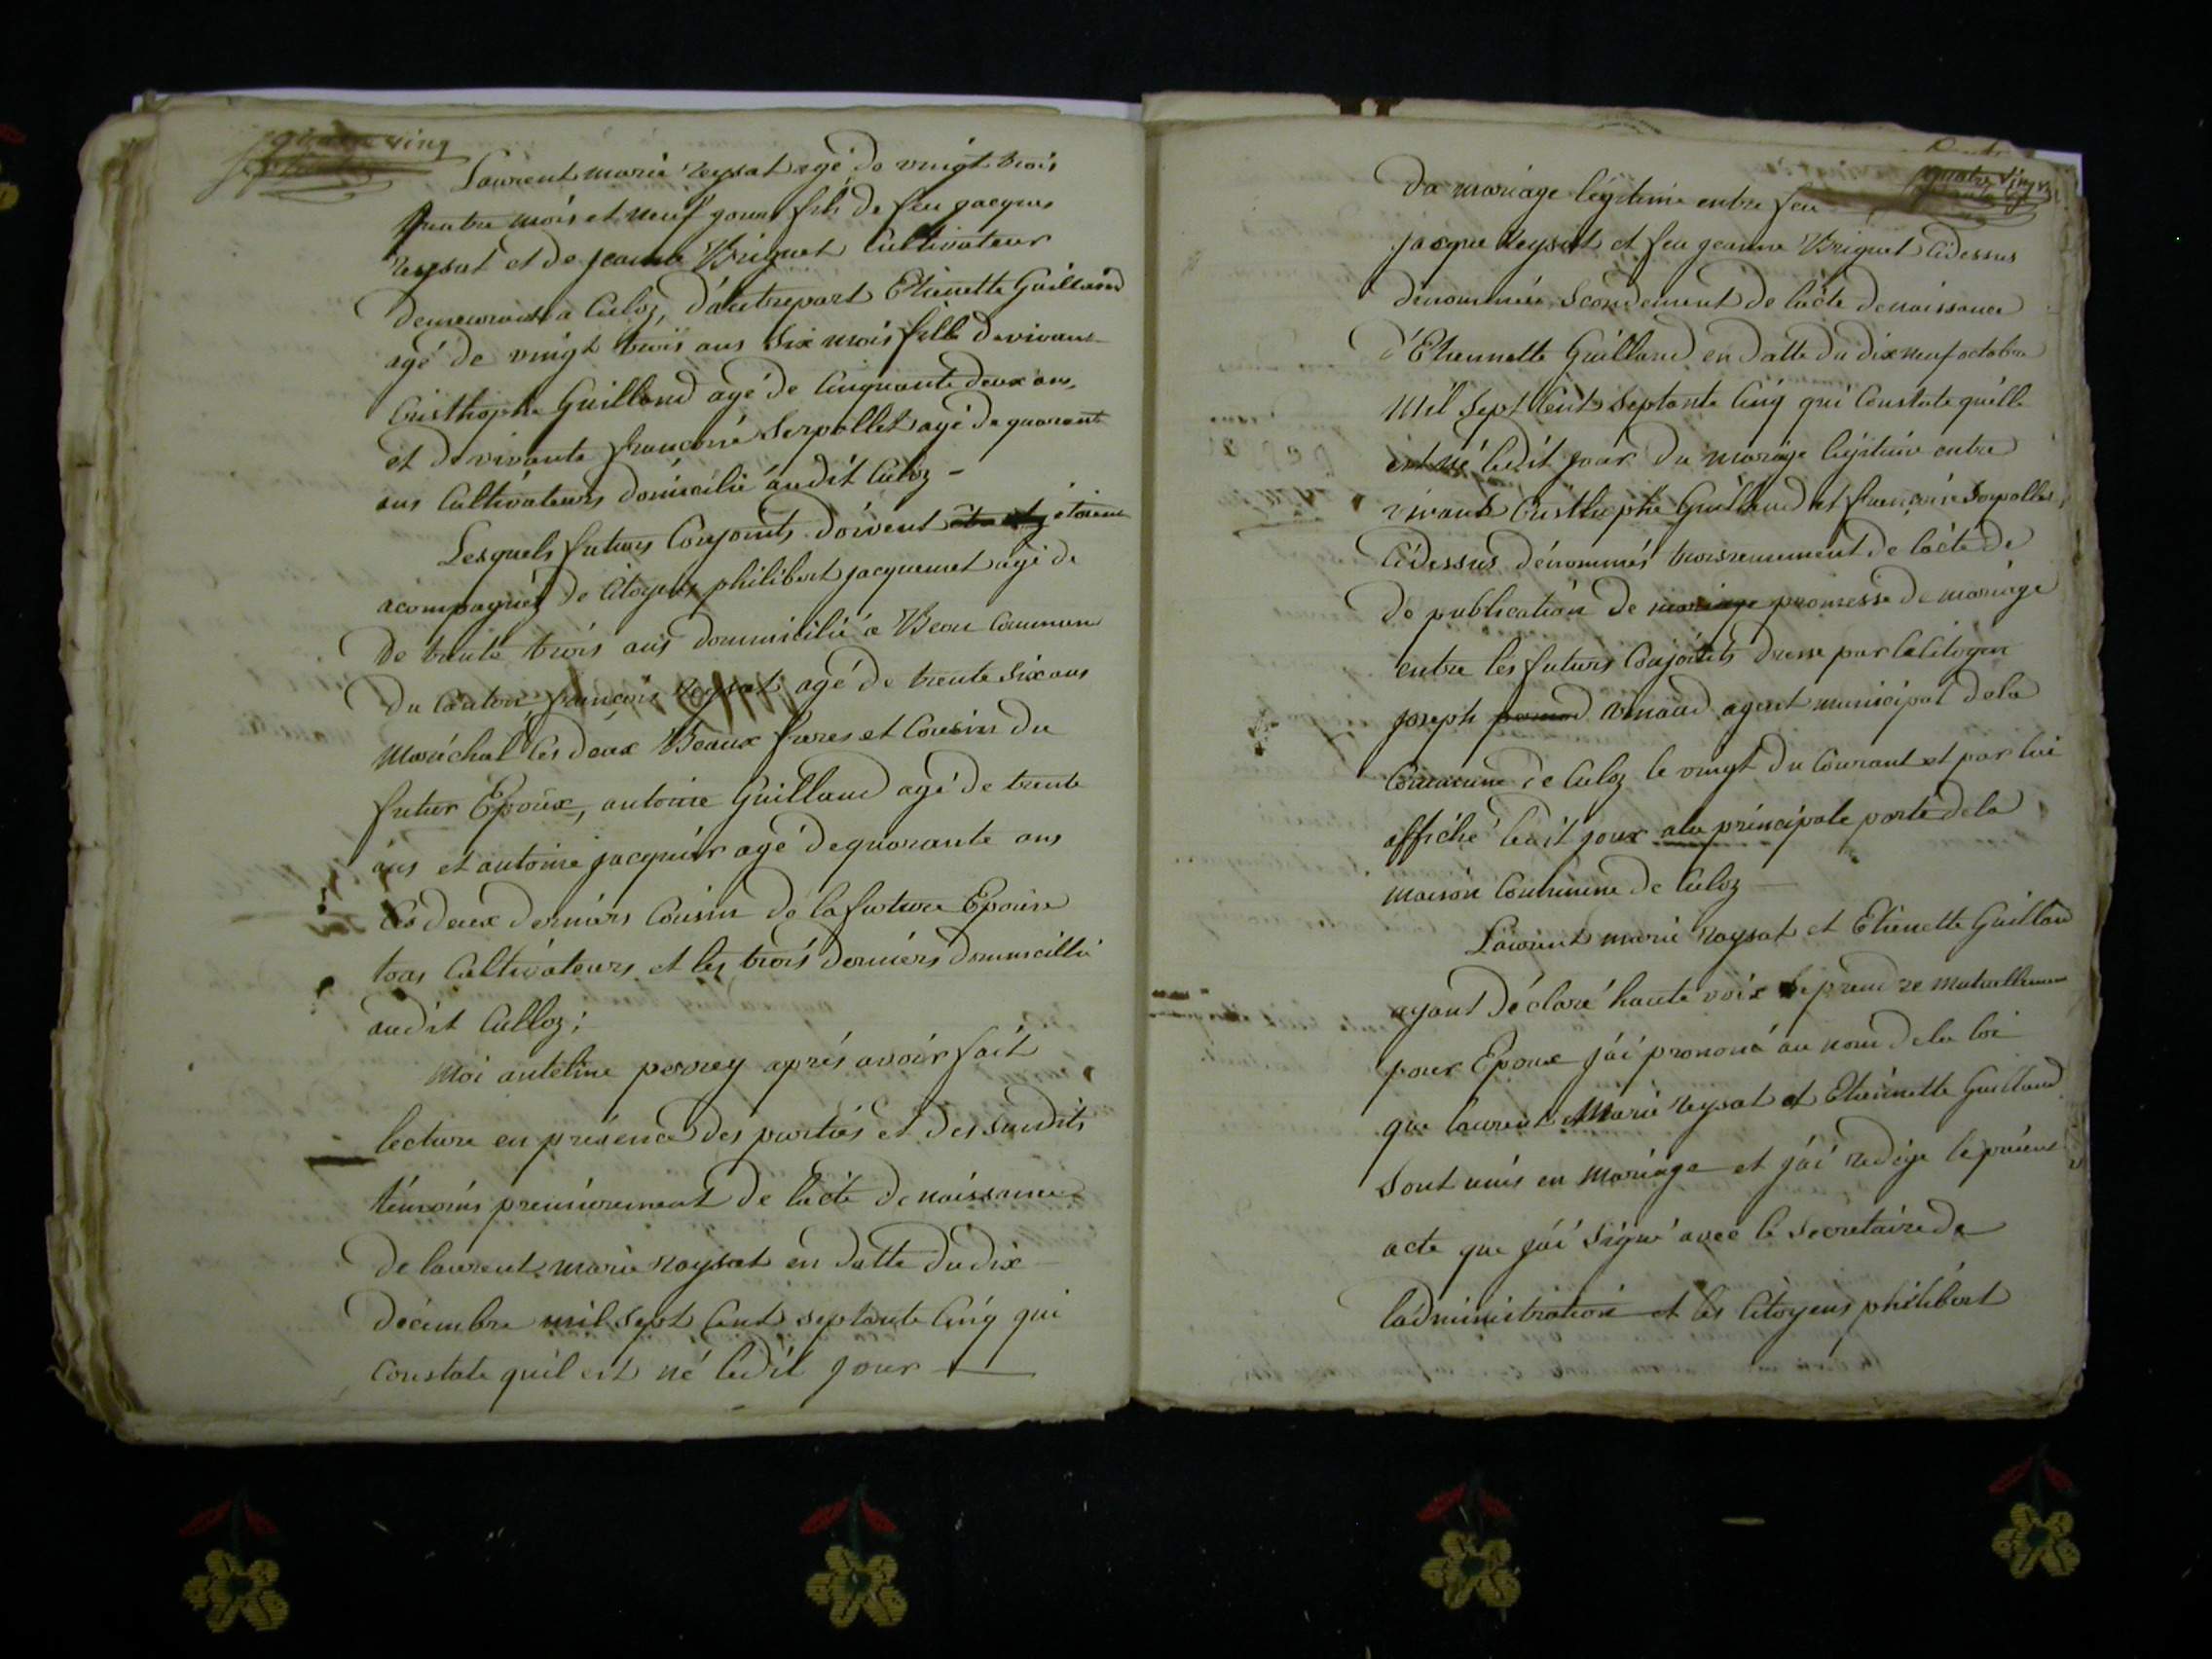 quatre ving
Laurent marie reysat agé de vingt trois
quatre mois et neuf jours fils de feu jacques
reysat et de jeanne Briguet Cultivateur
demeurant a Culoz, d'autrepart Etienette Guilland
agé de vingt trois ans six mois fille de vivant
Cristhophe Guilland agé de Cinquante deux ans,
et de vivante francoise Serpollet agé de quarante
ans Cultivateurs domicilié audit Culoz -
Lesquels futurs Conjoints doivent etoient
acompagnéz de Citoyens philibert jacquemet agé de
de trente trois ans dommicilié a Beon Commune
du Canton françois reysat agé de trente six ans
maréchal les deux Beaux freres et Cousins du
futur Epoux, antoine Guilland agé de trente
ans et antoine jacquier agé de quarante ans
les deux derniers Cousin de la future Epouse
tous Cultivateurs et les trois derniers dommicillié
audit Culloz;
Moi antelme perrey aprés avoir fait
lecture en présence des parties et des susdits
témoins premierement de l'acte de naissance
de laurent marie raysat en datte du dix
décembre mil sept Cent septante Cinq qui
Constate quil est né ledit jour
quatre vingt
du mariage légitime entre feu
jacque Reysat et feu jeanne Briguet Cidessus
denommée Scondement de lacte de naissance
d'Etiennette Guilland en datte du dix neuf octobre
Mil Sept Cent Septante Cinq qui Constate quélle
est né ledit jour du mariage légitime entre
vivants Cristhophe Guilland et françoise Serpollet
Cidessus dénommés troisiemement de lacte de
de publication de mariage promesse de mariage
entre les futurs Conjoints dressé par le Citoyen
joseph armand agent municipal de la
Commune de Culoz le vingt du Courant et par lui
affiché ledit jour a la principale porte de la
maison Commune de Culoz
Laurent marie raysat et Etienette Guilland
ayant déclaré haute voix se prendre mutuellement
pour Epoux j'ai prononcé au nom de la loi
que laurent Marie reysat et Etiennette Guilland
sont unis en mariage et j'ai redigé le présent
acte que j'ai Signé avec le Secretaire de
ladministration et les Citoyens philibert